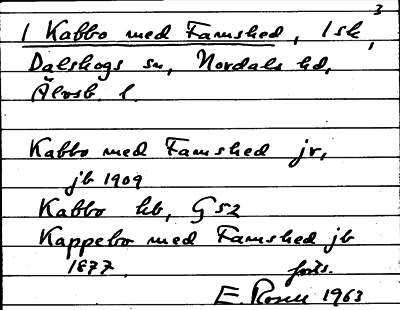 3
1 Kabbo med Famshed, 1 sk,
Dalskogs sn, Nordals hd,
Älvsb. l.
Kabbo med Famshed jr,
jb 1909
Kabbo hb, G52
Kappebo med Famshed jb
1877. forts.
E. Rosell 1963